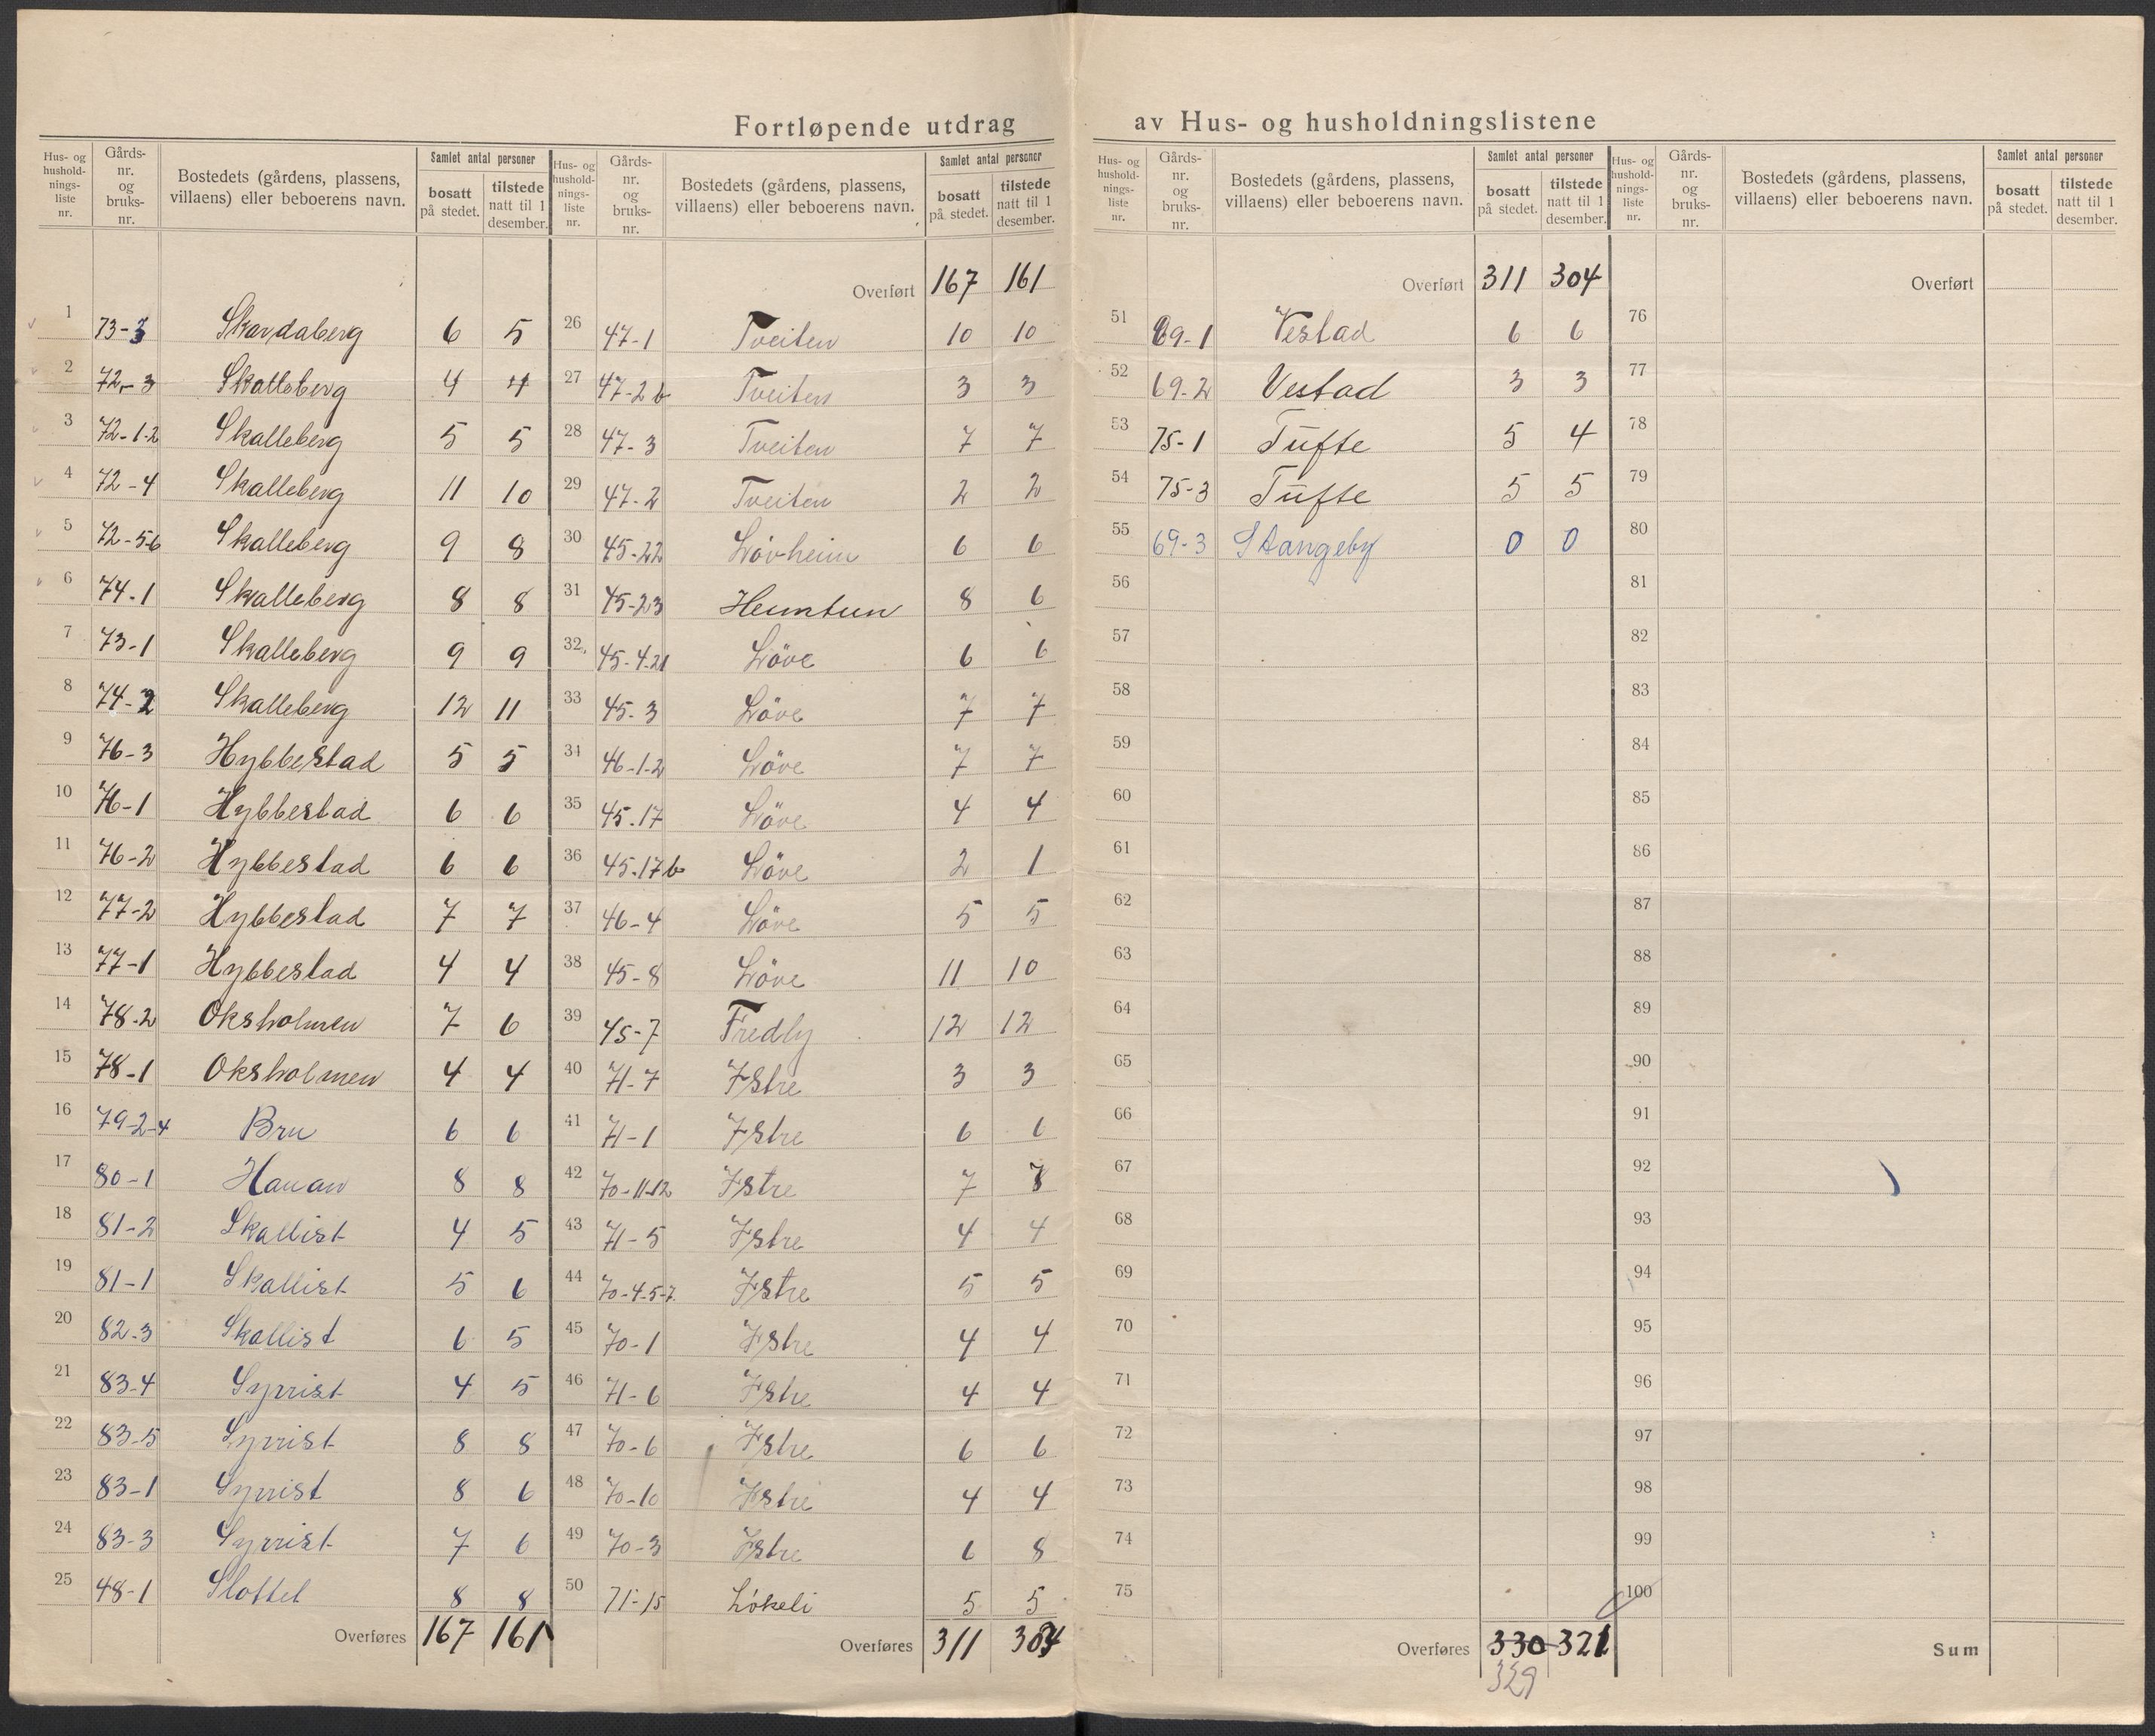 Fortløpende utdrag av Hus- og husholdningslistene
Hus- og hushold-nings-liste nr.
Gårds-nr. og bruks-nr.
Bostedets (gårdens, plassens, villaens) eller beboerens navn.
Samlet antal personer
bosatt på stedet.
tilstede natt til 1 desember.
1 73-3 Skardaberg 6 5
2 72-3 Skalleberg 4 4
3 72-1-2 Skalleberg 5 5
4 72-4 Skalleberg 11 10
5 72-5-6 Skalleberg 9 8
6 74-1 Skalleberg 8 8
7 73-1 Skalleberg 9 9
8 74-2 Skalleberg 12 11
9 76-3 Hybbestad 5 5
10 76-1 Hybbestad 6 6
11 76-2 Hybbestad 6 6
12 77-2 Hybbestad 7 7
13 77-1 Hybbestad 4 4
14 78-2 Oksholmen 7 6
15 78-1 Oksholmen 4 4
16 79-2-4 Bru 6 6
17 80-1 Hauan 8 8
18 81-2 Skallist 4 5
19 81-1 Skallist 5 6
20 82-3 Skallist 6 5
21 83-4 Syrrist 4 5
22 83-5 Syrrist 8 8
23 83-1 Syrrist 8 6
24 83-3 Syrrist 7 6
25 48-1 Slottet 8 8
Overføres 167 161
Hus- og hushold-nings-liste nr.
Gårds-nr. og bruks-nr.
Bostedets (gårdens, plassens, villaens) eller beboerens navn.
Samlet antal personer
bosatt på stedet.
tilstede natt til 1 desember.
Overført 167 161
26 47-1 Tveiten 10 10
27 47-2b Tveiten 3 3
28 47-3 Tveiten 7 7
29 47-2 Tveiten 2 2
30 45-22 Lövheim 6 6
31 45-23 Heimtun 8 6
32 45-4-21 Löve 6 6
33 45-3 Löve 7 7
34 46-1-2 Löve 7 7
35 45-17 Löve 4 4
36 45-17b Löve 2 1
37 46-4 Löve 5 5
38 45-8 Löve 11 10
39 45-7 Fredly 12 12
40 71-7 Istre 3 3
41 71-1 Istre 6 6
42 70-11-12 Istre 7 8
43 71-5 Istre 4 4
44 70-4-5-7 Istre 5 5
45 70-1 Istre 4 4
46 71-6 Istre 4 4
47 70-6 Istre 6 6
48 70-10 Istre 4 4
49 70-3 Istre 6 8
50 71-15 Lökeli 5 5
Overføres 311 304
Hus- og hushold-nings-liste nr.
Gårds-nr. og bruks-nr.
Bostedets (gårdens, plassens, villaens) eller beboerens navn.
Samlet antal personer
bosatt på stedet.
tilstede natt til 1 desember.
Overført 311 304
51 69-1 Vestad 6 6
52 69-2 Vestad 3 3
53 75-1 Tufte 5 4
54 75-3 Tufte 5 5
55 69-3 Stangeby 0 0
56
57
58
59
60
61
62
63
64
65
66
67
68
69
70
71
72
73
74
75
Overføres 330 321
329
Hus- og hushold-nings-liste nr.
Gårds-nr. og bruks-nr.
Bostedets (gårdens, plassens, villaens) eller beboerens navn.
Samlet antal personer
bosatt på stedet.
tilstede natt til 1 desember.
Overført
76
77
78
79
80
81
82
83
84
85
86
87
88
89
90
91
92
93
94
95
96
97
98
99
100
Sum